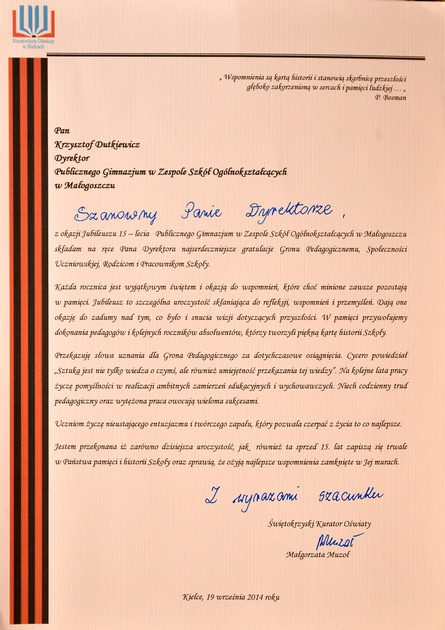 Kuratorium Oświaty
w Kielcach
„ Wspomnienia są kartą historii i stanowią skarbnicę przeszłości
głęboko zakorzenioną w sercach i pamięci ludzkiej … „
P. Bosman
Pan
Krzysztof Dutkiewicz
Dyrektor
Publicznego Gimnazjum w Zespole Szkół Ogólnokształcących
w Małogoszczu
Szanowny Panie Dyrektorze,
z okazji Jubileuszu 15 – lecia Publicznego Gimnazjum w Zespole Szkół Ogólnokształcących w Małogoszczu
składam na ręce Pana Dyrektora najserdeczniejsze gratulacje Gronu Pedagogicznemu, Społeczności
Uczniowskiej, Rodzicom i Pracownikom Szkoły.
Każda rocznica jest wyjątkowym świętem i okazją do wspomnień, które choć minione zawsze pozostają
w pamięci. Jubileusz to szczególna uroczystość skłaniająca do refleksji, wspomnień i przemyśleń. Dają one
okazję do zadumy nad tym, co było i snucia wizji dotyczących przyszłości. W pamięci przywołujemy
dokonania pedagogów i kolejnych roczników absolwentów, którzy tworzyli piękną kartę historii Szkoły.
Przekazuję słowa uznania dla Grona Pedagogicznego za dotychczasowe osiągnięcia. Cycero powiedział
„Sztuką jest nie tylko wiedza o czymś, ale również umiejętność przekazania tej wiedzy”. Na kolejne lata pracy
życzę pomyślności w realizacji ambitnych zamierzeń edukacyjnych i wychowawczych. Niech codzienny trud
pedagogiczny oraz wytężona praca owocują wieloma sukcesami.
Uczniom życzę nieustającego entuzjazmu i twórczego zapału, który pozwala czerpać z życia to co najlepsze.
Jestem przekonana iż zarówno dzisiejsza uroczystość, jak również ta sprzed 15. lat zapiszą się trwale
w Państwa pamięci i historii Szkoły oraz sprawią, że ożyją najlepsze wspomnienia zamknięte w Jej murach.
Z wyrazami szacunku
Świętokrzyski Kurator Oświaty
MMuzoł
Małgorzata Muzoł
Kielce, 19 września 2014 roku